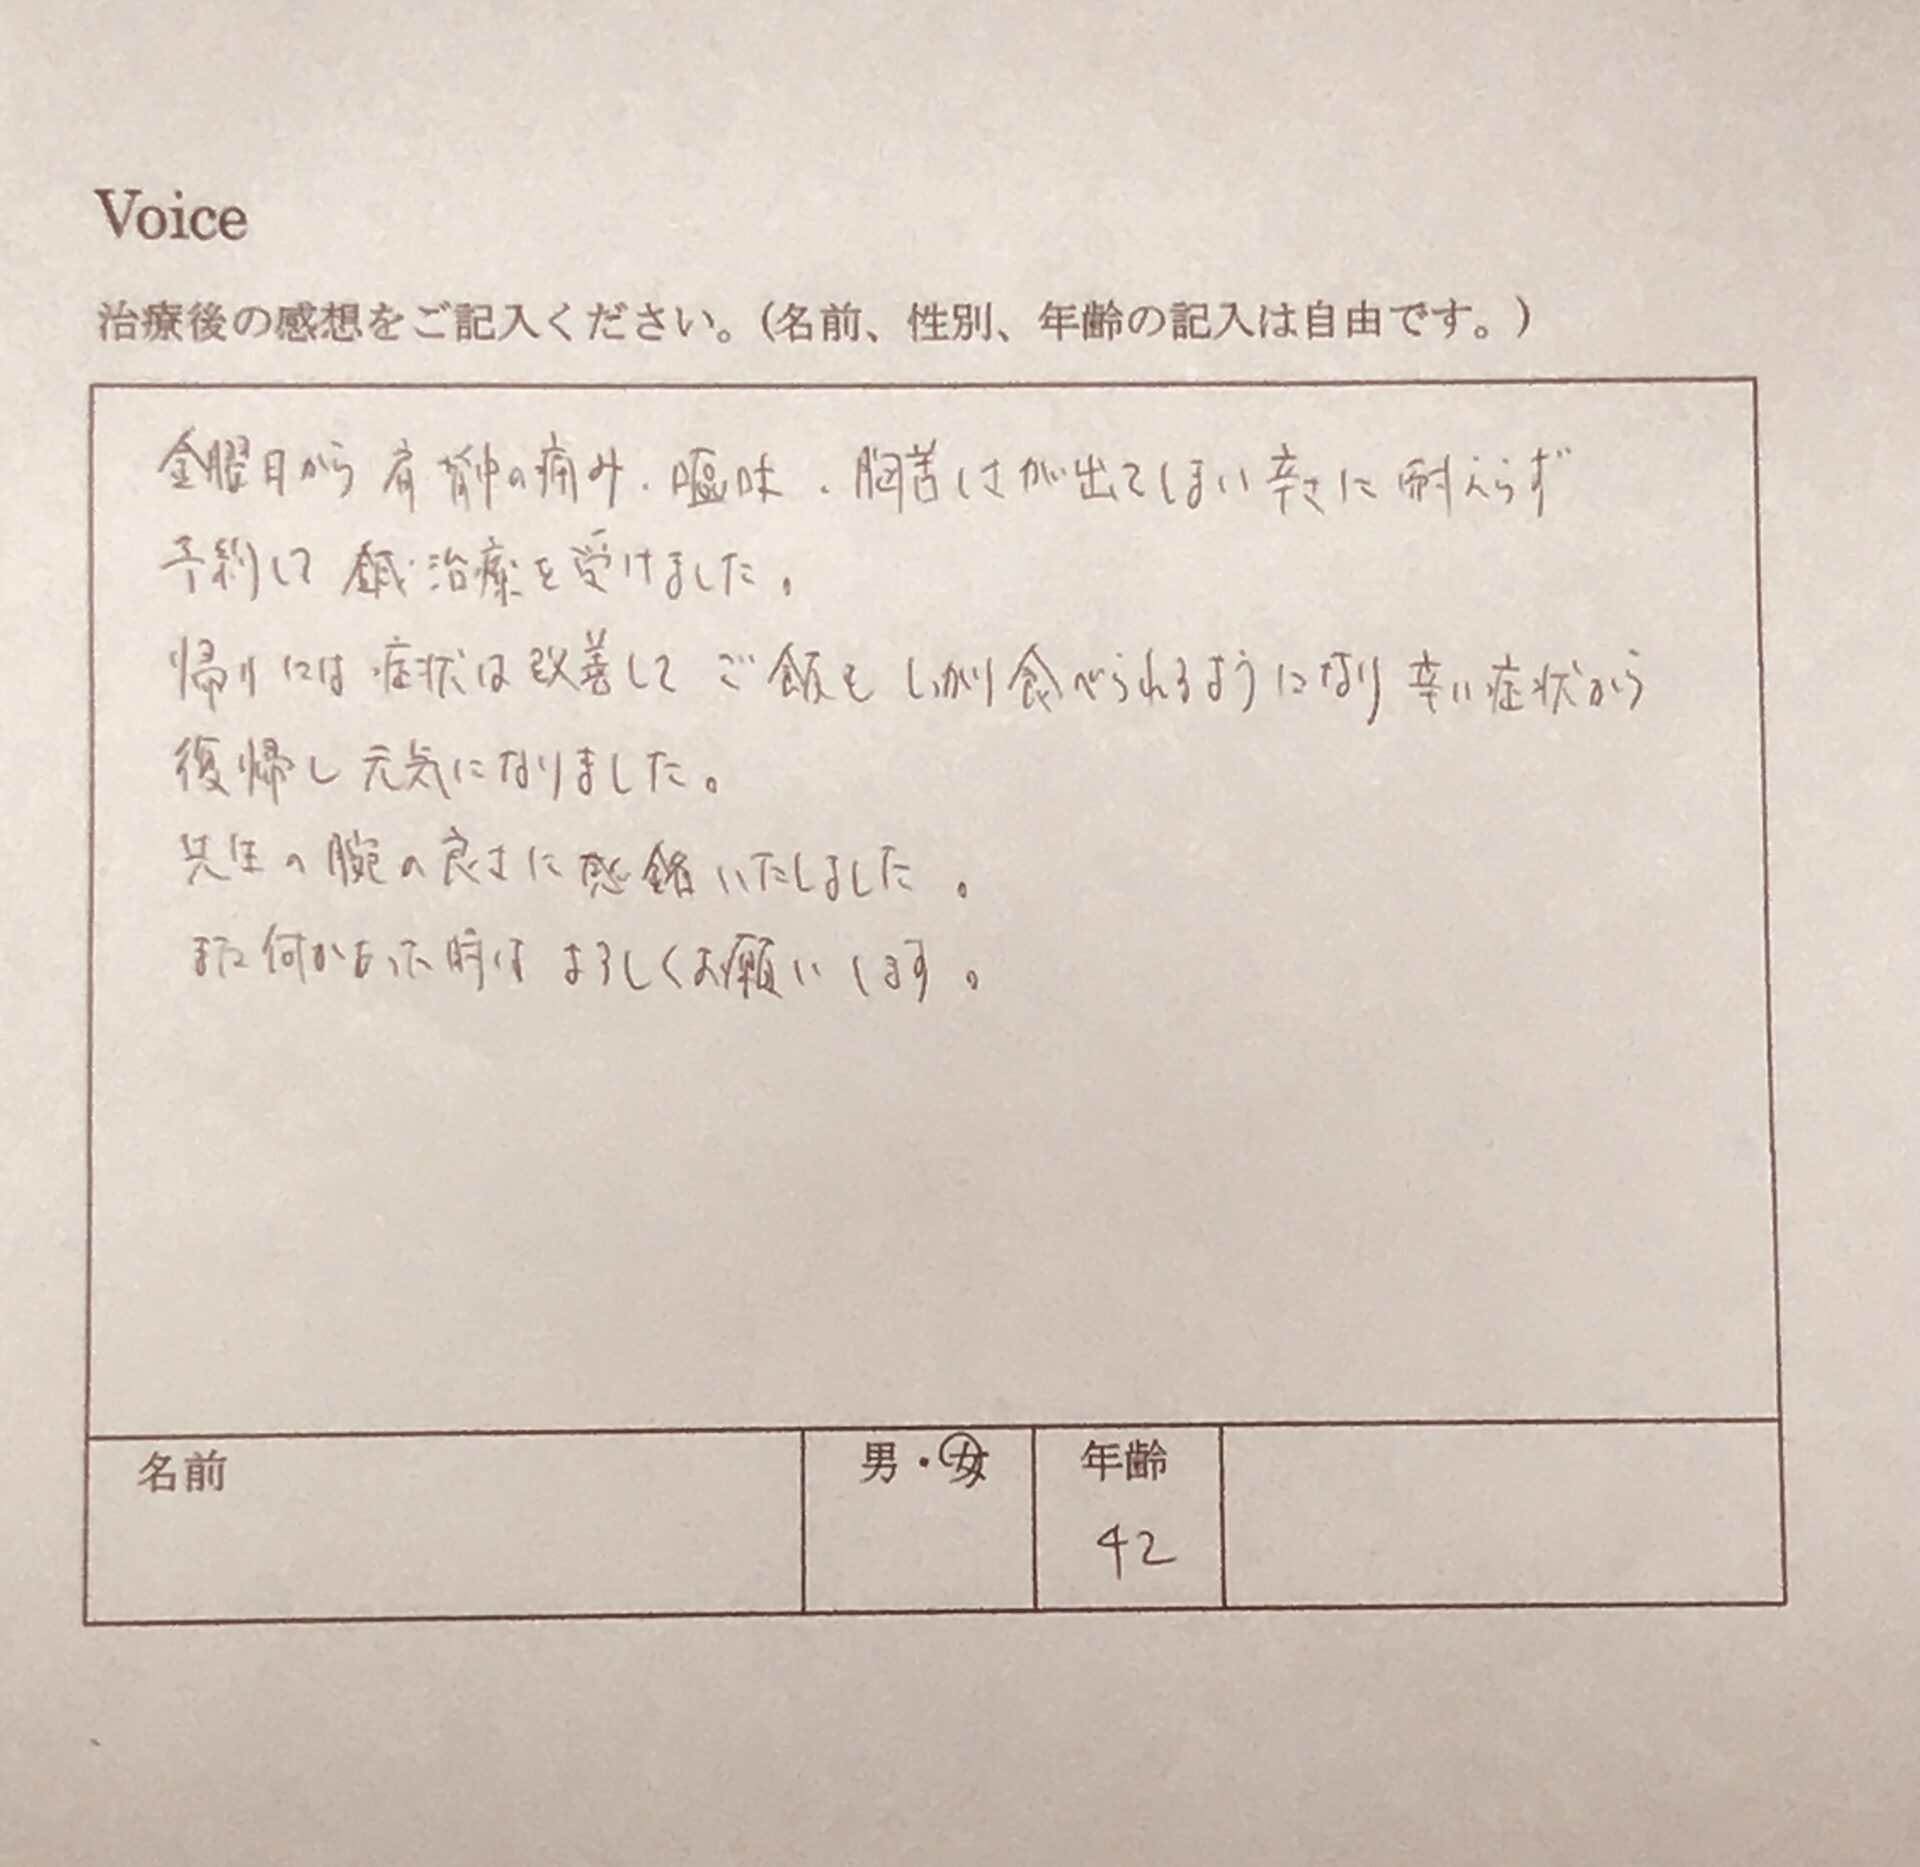 Voice
治療後の感想をご記入ください。（名前、性別、年齢の記入は自由です。）
金曜日から肩 背中の痛み・嘔味・胸苦しさが出てしまい辛さに耐えらず
予約して鍼治療を受けました。
帰りには症状は改善してご飯もしっかり食べられるようになり辛い症状から
復帰し元気になりました。
先生の腕の良さに感銘いたしました。
また何かあった時はよろしくお願いします。
名前 男・女 年齢
42